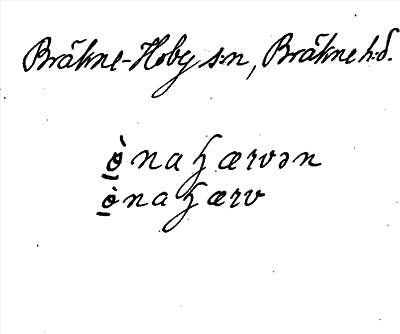 Bräkne-Hoby s:n, Bräkne h:d.
ò̱nahærvən
ò̱nahærv